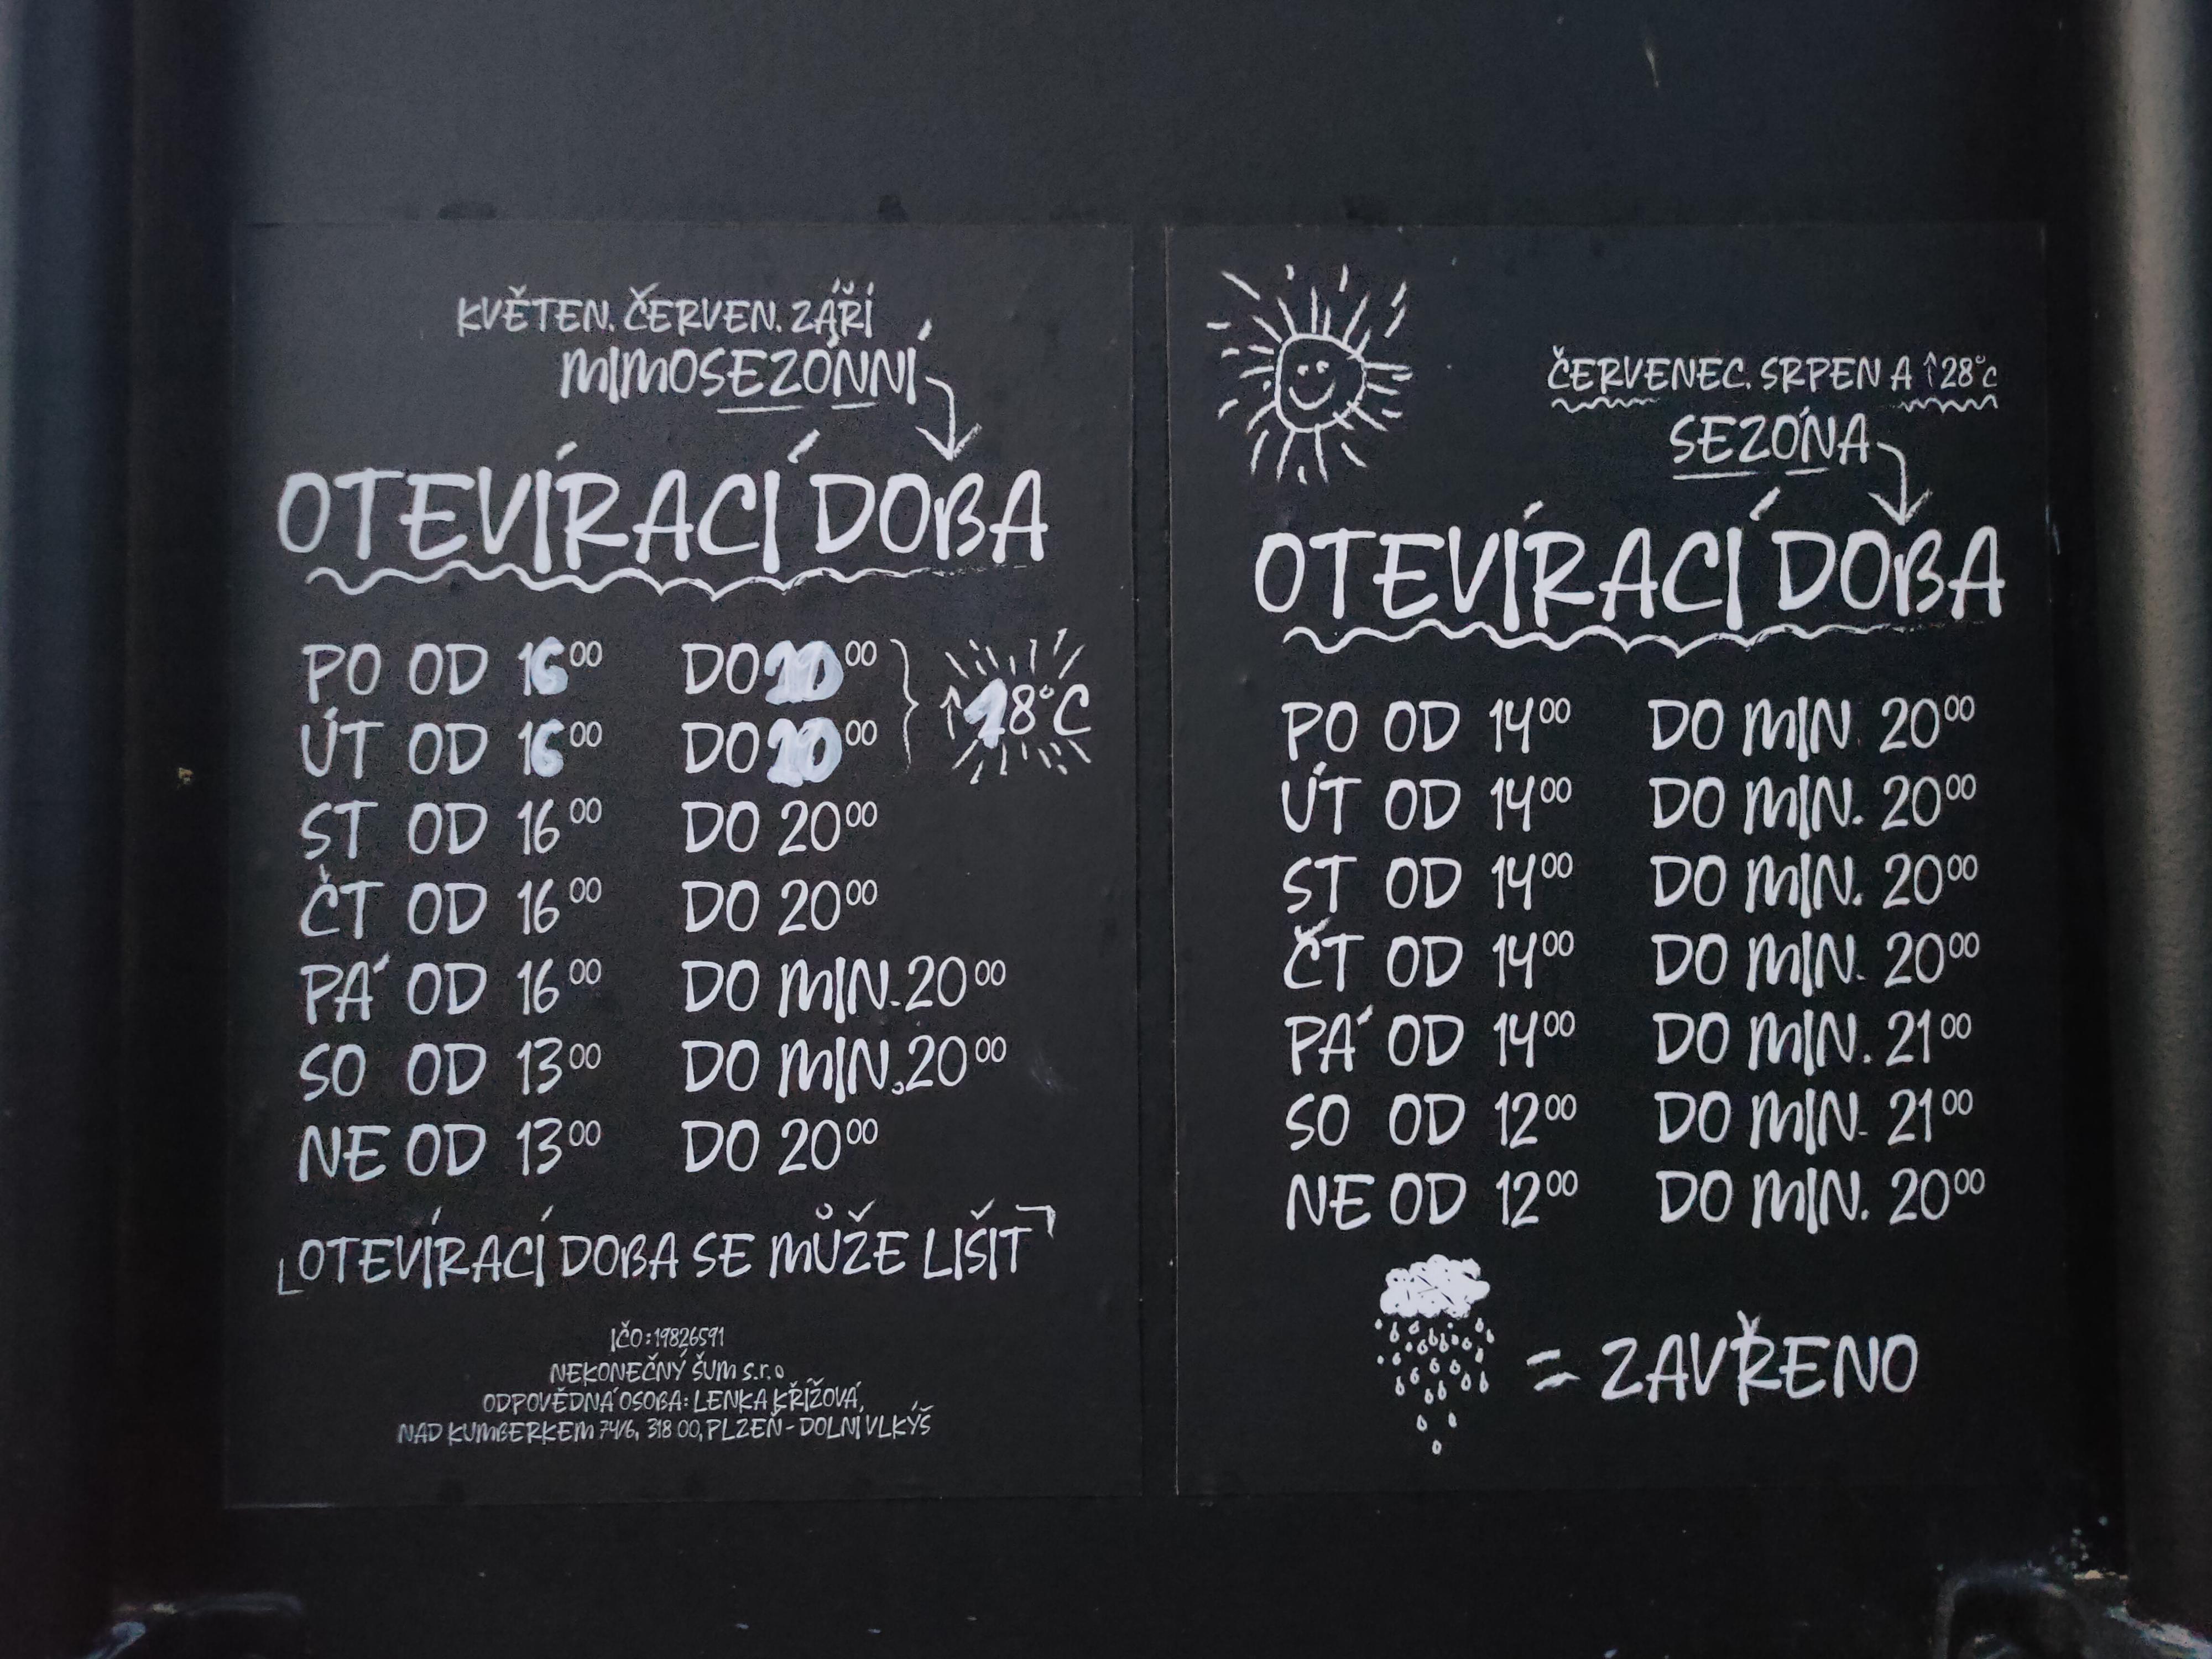 KVĚTEN. ČERVEN. ZÁŘÍ
MIMOSEZÓNNÍ
OTEVÍRACÍ DOBA
PO OD 16⁰⁰ DO 20⁰⁰
ÚT OD 16⁰⁰ DO 20⁰⁰
↑18°C
ST OD 16⁰⁰ DO 20⁰⁰
ČT OD 16⁰⁰ DO 20⁰⁰
PÁ OD 16⁰⁰ DO MIN. 20⁰⁰
SO OD 13⁰⁰ DO MIN. 20⁰⁰
NE OD 13⁰⁰ DO 20⁰⁰
OTEVÍRACÍ DOBA SE MŮŽE LIŠIT
IČO: 19826591
NEKONEČNÝ ŠUM s.r.o
ODPOVĚDNÁ OSOBA: LENKA KŘÍŽOVÁ,
NAD KUMBERKEM 74/6, 318 00, PLZEŇ - DOLNÍ VLKÝŠ
ČERVENEC. SRPEN A ↑28°C
SEZÓNA
OTEVÍRACÍ DOBA
PO OD 14⁰⁰ DO MIN. 20⁰⁰
ÚT OD 14⁰⁰ DO MIN. 20⁰⁰
ST OD 14⁰⁰ DO MIN. 20⁰⁰
ČT OD 14⁰⁰ DO MIN. 20⁰⁰
PÁ OD 14⁰⁰ DO MIN. 21⁰⁰
SO OD 12⁰⁰ DO MIN. 21⁰⁰
NE OD 12⁰⁰ DO MIN. 20⁰⁰
= ZAVŘENO